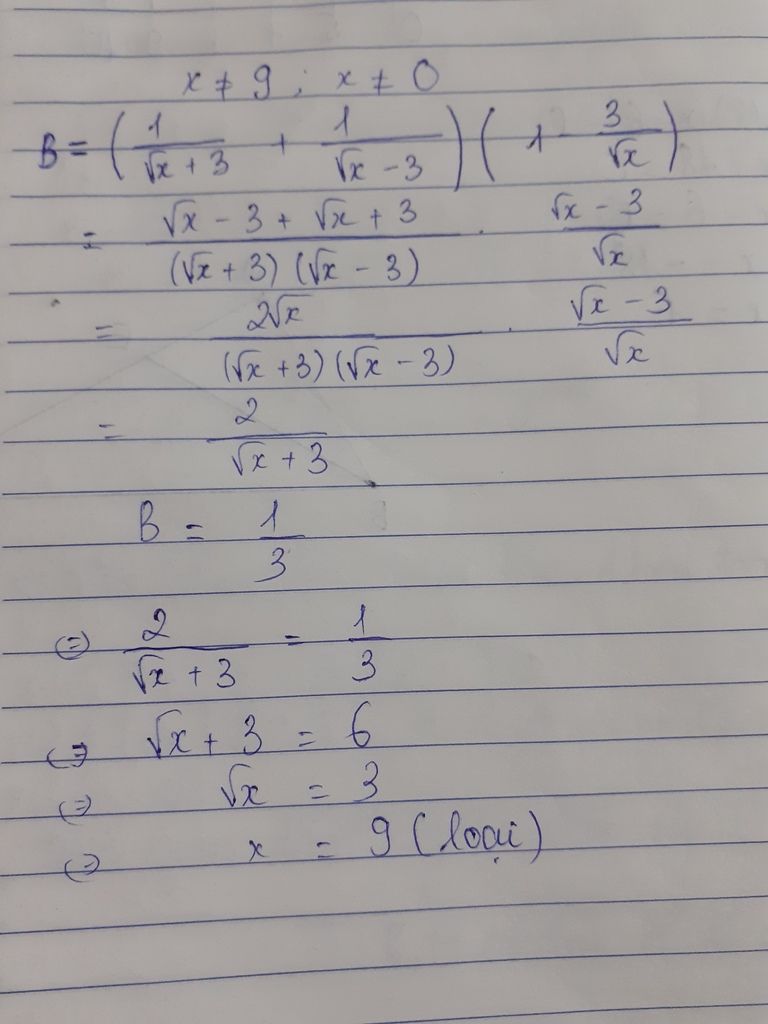 x ≠ 9 ; x ≠ 0
B = (1/(√x + 3) + 1/(√x - 3)) (1 - 3/√x)
= (√x - 3 + √x + 3)/((√x + 3) (√x - 3)) . (√x - 3)/√x
= 2√x/((√x + 3) (√x - 3)) . (√x - 3)/√x
= 2/(√x + 3)
B = 1/3
⇔ 2/(√x + 3) = 1/3
⇔ √x + 3 = 6
⇔ √x = 3
⇔ x = 9 (loại)